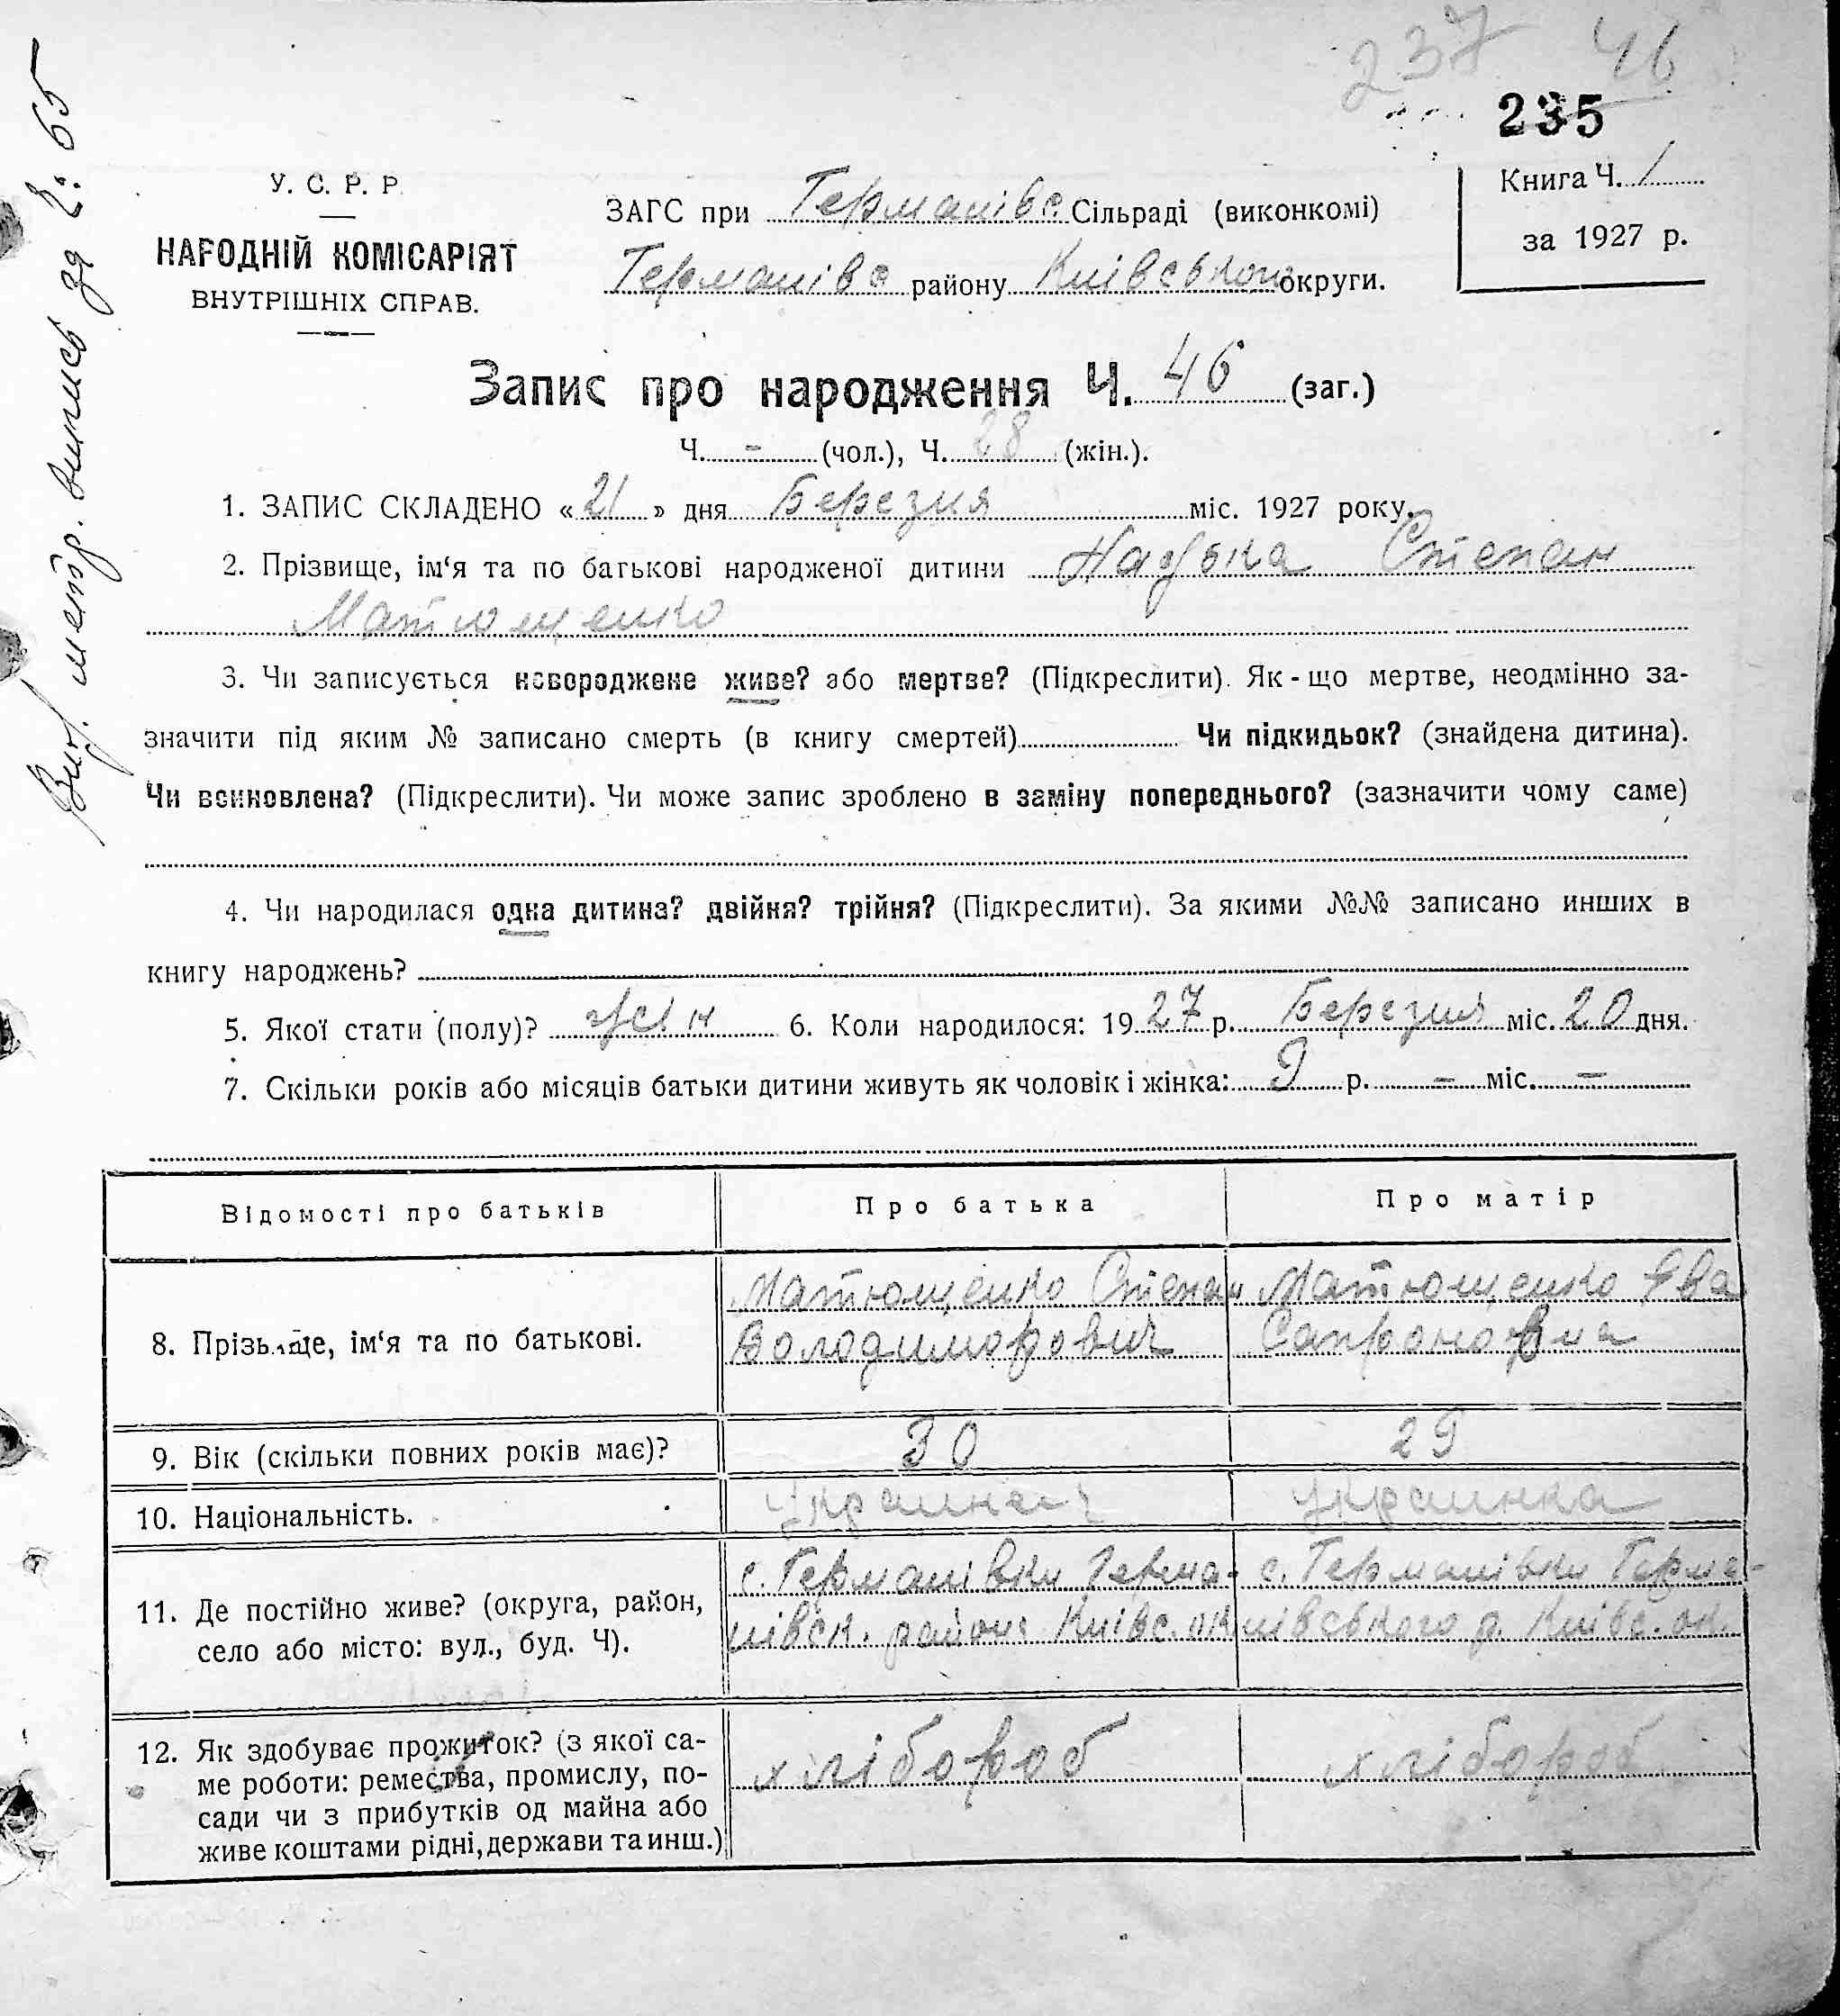 237 46
235
У. С. Р. Р.
НАРОДНІЙ КОМІСАРІЯТ
ВНУТРІШНІХ СПРАВ.
ЗАГС при Германівс. Сільраді (виконкомі)
Германівс району Київського округи.
Книга Ч. 1
за 1927 р.
Запис про народження Ч. 46 (заг.)
Ч. - (чол.), Ч. 28 (жін.).
1. ЗАПИС СКЛАДЕНО « 21 » дня Березня міс. 1927 року.
2. Прізвище, ім‘я та по батькові народженої дитини Надька Степан
Матющенко
3. Чи записується новороджене живе? або мертве? (Підкреслити). Як-що мертве, неодмінно за-
значити під яким № записано смерть (в книгу смертей) Чи підкидьок? (знайдена дитина).
Чи всиновлена? (Підкреслити). Чи може запис зроблено в заміну попереднього? (зазначити чому саме)
4. Чи народилася одна дитина? двійня? трійня? (Підкреслити). За якими №№ записано инших в
книгу народжень?
5. Якої стати (полу)? жін 6. Коли народилося: 1927 р. Березня міс. 20 дня.
7. Скільки років або місяців батьки дитини живуть як чоловік і жінка: 9 р. - міс. -
Відомості про батьків Про батька Про матір
8. Прізьвище, ім‘я та по батькові.
Матющенко Степан
Володимирович
Матющенко Ява
Сапроновна
9. Вік (скільки повних років має)? 30 29
10. Національність. Украинец Украинка
11. Де постійно живе? (округа, район,
село або місто: вул., буд. Ч).
с. Германівки Герма-
нівск. району Київс. ок
с. Германівки Герма-
нівського р. Київс. ок.
12. Як здобуває прожиток? (з якої са-
ме роботи: ремества, промислу, по-
сади чи з прибутків од майна або
живе коштами рідні, держави та инш.)
хлібороб
хлібороб
метр. випись за №: 65